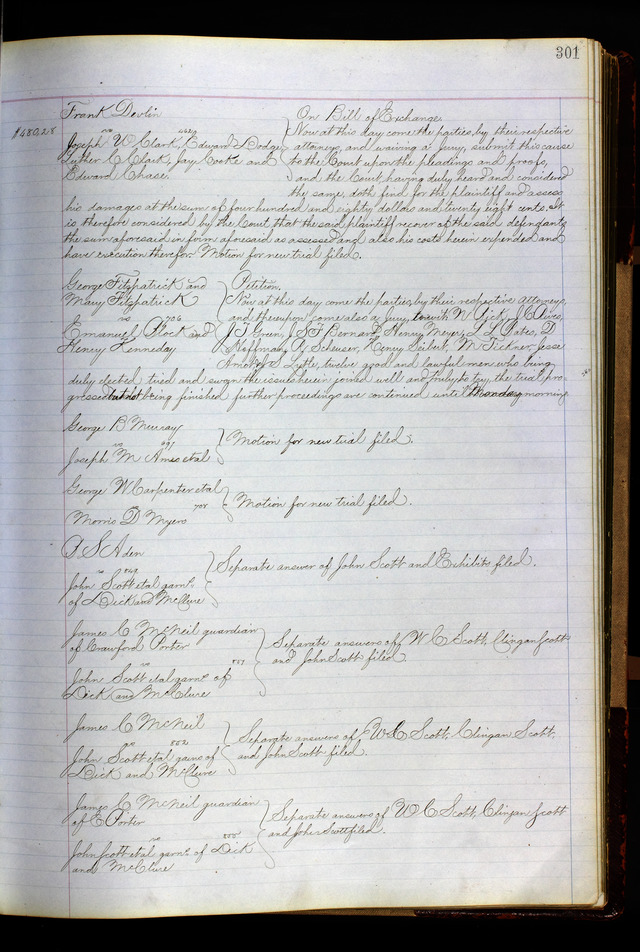 301
Frank Devlin
On Bill of Exchange
$480.28
vs
Joseph W Clark, Edward Dodge
Luther C Clark, Jay Cooke and
Edward Chase
Now at this day come the parties, by their respective
attorneys, and waiving a Jury, submit this cause
to the Court upon the pleadings and proofs,
and the Court having duly heard and considered
the same, doth find for the plaintiff and assess
his damages at the sum of four hundred and eighty dollars and twenty eight cents. It
is therefore considered by the Court, that the said plaintiff recover of the said defendants
the sum aforesaid in form aforesaid as assessed and also his costs herein expended and
have execution therefor. Motion for new trial filed.
George Fitzpatrick and
Mary Fitzpatrick
vs 706
Emanuel Block and
Henry Kenneday
Petition,
Now at this day come the parties, by their respective attorneys,
and thereupon come also a Jury, to wit, N Pick, J C Rives,
J T Green, J S F Bernard, Henry Meyer, L L Yates, D
Hoffman, A Scheuser, Henry Seibert, M Tickner, Jesse
Arnot, Lytle, twelve good and lawful men who being
duly elected tried and sworn the issue herein joined well and truly to try, the trial pro-
gressed but not being finished further proceedings are continued until Thursday morning
George B Murray
vs 691
Joseph M Ames et al
Motion for new trial filed.
George W Carpenter et al
vs 708
Morris D Myers
Motion for new trial filed.
P S Aden
vs 849
John Scott et al garns.
of Dick and McClure
Separate answer of John Scott and Exhibits filed.
James C McNeil guardian
of Crawford Porter
vs 851
John Scott et al garns. of
Dick and McClure
Separate answers of W C Scott, Clingan Scott
and John Scott filed.
James C McNeil
vs 852
John Scott et al garns of
Dick and McClure
Separate answers of W C Scott, Clingan Scott,
and John Scott filed.
James C McNeil guardian
of E Porter
vs
John Scott et al garns. of Dick
and McClure
Separate answers of W C Scott, Clingan Scott
and John Scott filed.